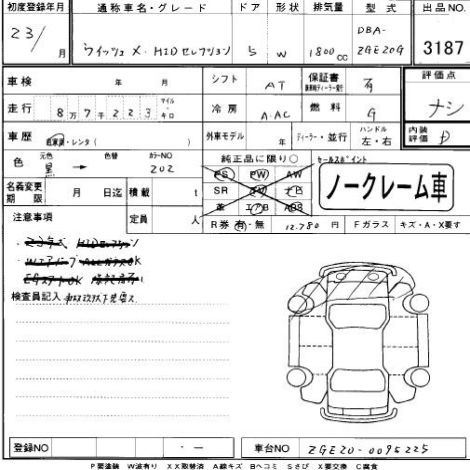 初度登録年月 通称車名・グレード ドア 形状 排気量 型式 出品NO.
23/ 月 ウイッシュ X・HIDセレクション 5 W 1800cc DBA-ZGE20G 3187
車検 年 月 シフト AT 保証書 有 評価点
走行 8万7千223 マイル・キロ 冷房 A.AC 燃料 G ナシ
車歴 自家用・レンタ( ) 外車モデル 年 ディーラー・並行 ハンドル 左・右 内装評価 D
色 元色 黒 → 色替 カラーNO 202
純正品に限り○ セールスポイント
PS PW AW
SR ナビ
革 エアB ABS
ノークレーム車
名義変更期限 月 日迄 積載 t
定員 人 R券 有・無 12.780円 Fガラス キズ・A・X要す
注意事項
検査員記入
登録NO ・ー 車台NO ZGE20-0095225
P要塗装 W波有り XX取替済 A線キズ Bヘコミ Sさび X要交換 C腐食